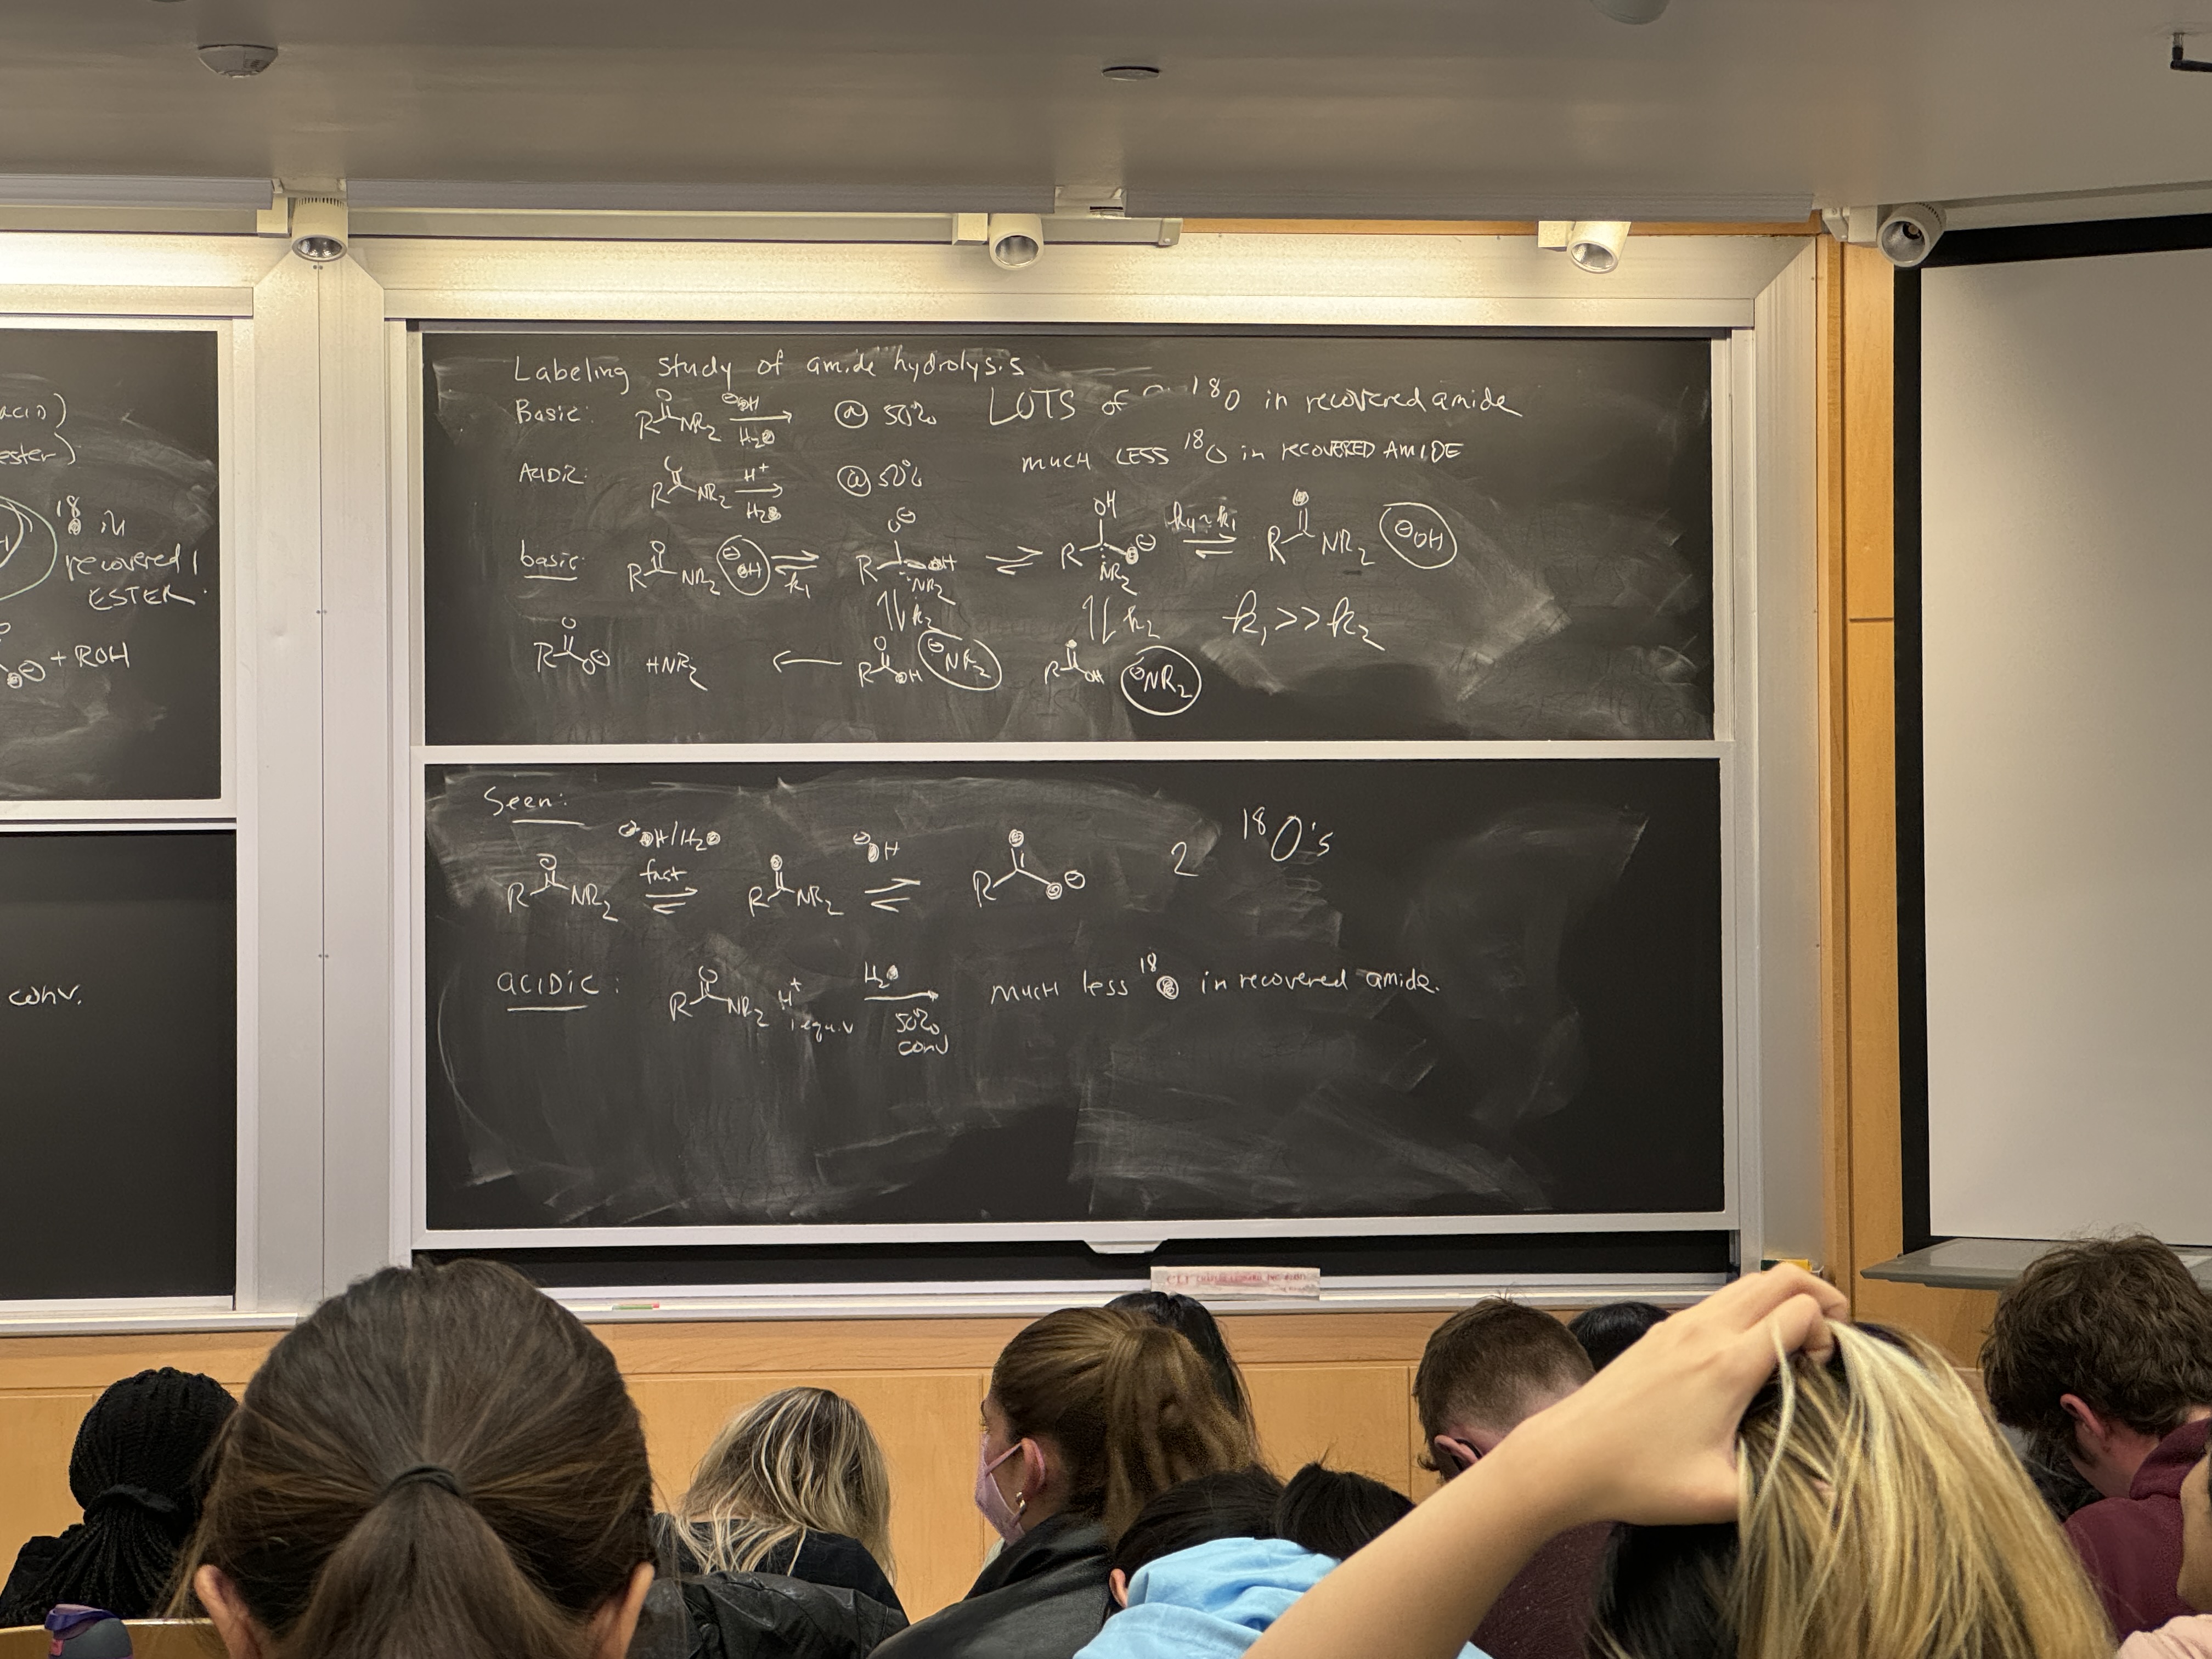 acid)
ester)
18
O in
recovered
ESTER.
O⊖ + ROH
conv.
Labeling study of amide hydrolysis
Basic: O R NR2 ⊖OH H2O @ 50% LOTS of 18O in recovered amide
Acidic: O R NR2 H+ H2O @ 50% MUCH LESS 18O in RECOVERED AMIDE
basic: O R NR2 ⊖OH ⇌ k1 O⊖ R OH NR2 ⇌ OH R O⊖ NR2 k4~k1 ⇌ O R NR2 ⊖OH
⇅ k2 ⇅ k2 k1 >> k2
O R O⊖ HNR2 ← O R OH ⊖NR2 O R OH ⊖NR2
Seen:
O R NR2 ⊖OH/H2O fast ⇌ O R NR2 ⊖OH ⇌ O R O⊖ 2 18O's
acidic: O R NR2 H+ 1 equiv H2O → 50% conv Much less 18O in recovered amide.